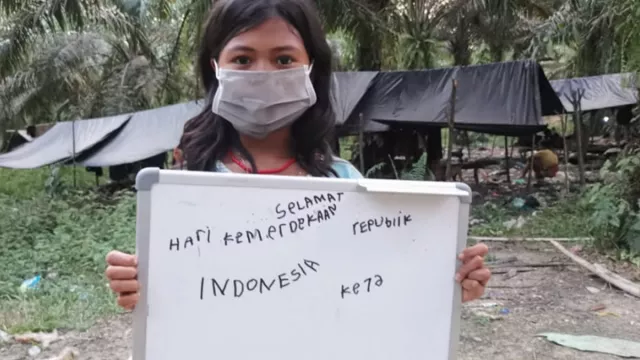 SELAMAT
HARI KEMERDEKAAN REPUBLIK
INDONESIA Ke72